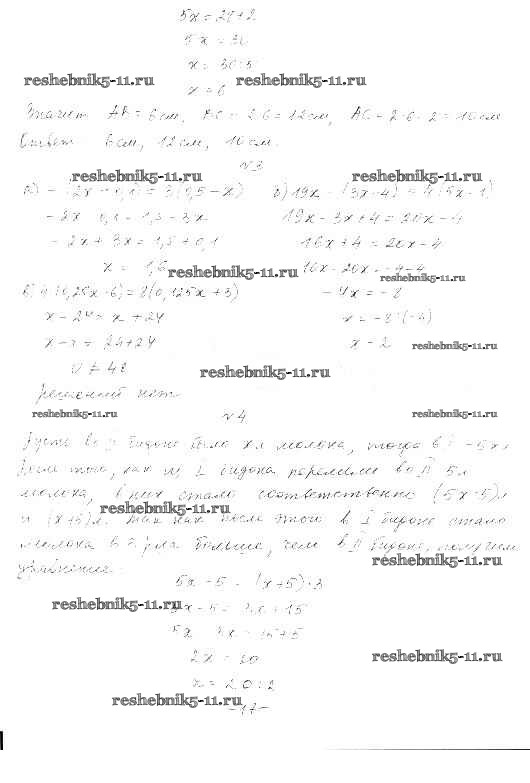 5x = 28+2
5x = 30
x = 30:5
reshebnik5-11.ru reshebnik5-11.ru
x = 6
Значит AB = 6см, BC = 2·6 = 12см, AC = 2·6-2 = 10см
Ответ 6см, 12см, 10см.
№3
reshebnik5-11.ru reshebnik5-11.ru
а) -(2x+0,1) = 3(0,5-x) б) 19x-(3x-4) = 4(5x-1)
-2x-0,1 = 1,5-3x 19x-3x+4 = 20x-4
-2x+3x = 1,5+0,1 16x+4 = 20x-4
x = 1,6 reshebnik5-11.ru 16x-20x = -4-4
reshebnik5-11.ru
(0,25x-6) = 8(0,125x+3) -4x = -8
x-24 = x+24 x = -8:(-4)
x-x = 24+24 x = 2 reshebnik5-11.ru
0 ≠ 48 reshebnik5-11.ru
решений нет
reshebnik5-11.ru №4 reshebnik5-11.ru
Пусть во II бидоне было x л молока, тогда в I - 5x л
того, как из I бидона перелили во II 5л
молока, в них стало соответственно (5x-5)л
reshebnik5-11.ru
и (x+5)л. Так как после этого в I бидоне стало
молока в 3 раза больше, чем во II бидоне, получим
reshebnik5-11.ru
уравнение:
5x-5 = (x+5)·3
reshebnik5-11.ru 5x-5 = 3x+15
5x-3x = 15+5
2x = 20 reshebnik5-11.ru
x = 20:2
reshebnik5-11.ru
-17-